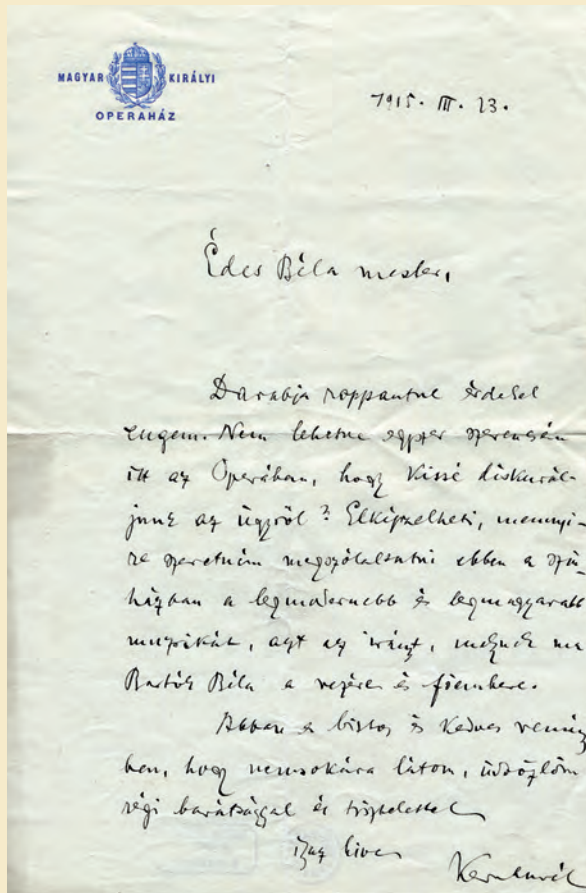 MAGYAR KIRÁLYI
OPERAHÁZ
1915. III. 23.
Édes Béla mester,
Darabja roppantul érdekel
engem. Nem lehetne egyszer szerencsém
itt az Operában, hogy kissé diskurál-
junk az ügyről? Elképzelheti, mennyi-
re szeretném megszólaltatni ebben a szín-
házban a legmodernebb és legmagyarabb
muzsikát, azt az irányt, melynek ma
Bartók Béla a vezére és főembere.
Abban a biztos és kedves remény-
ben, hogy nemsokára látom, üdvözlöm
régi barátsággal és tisztelettel
igaz hive